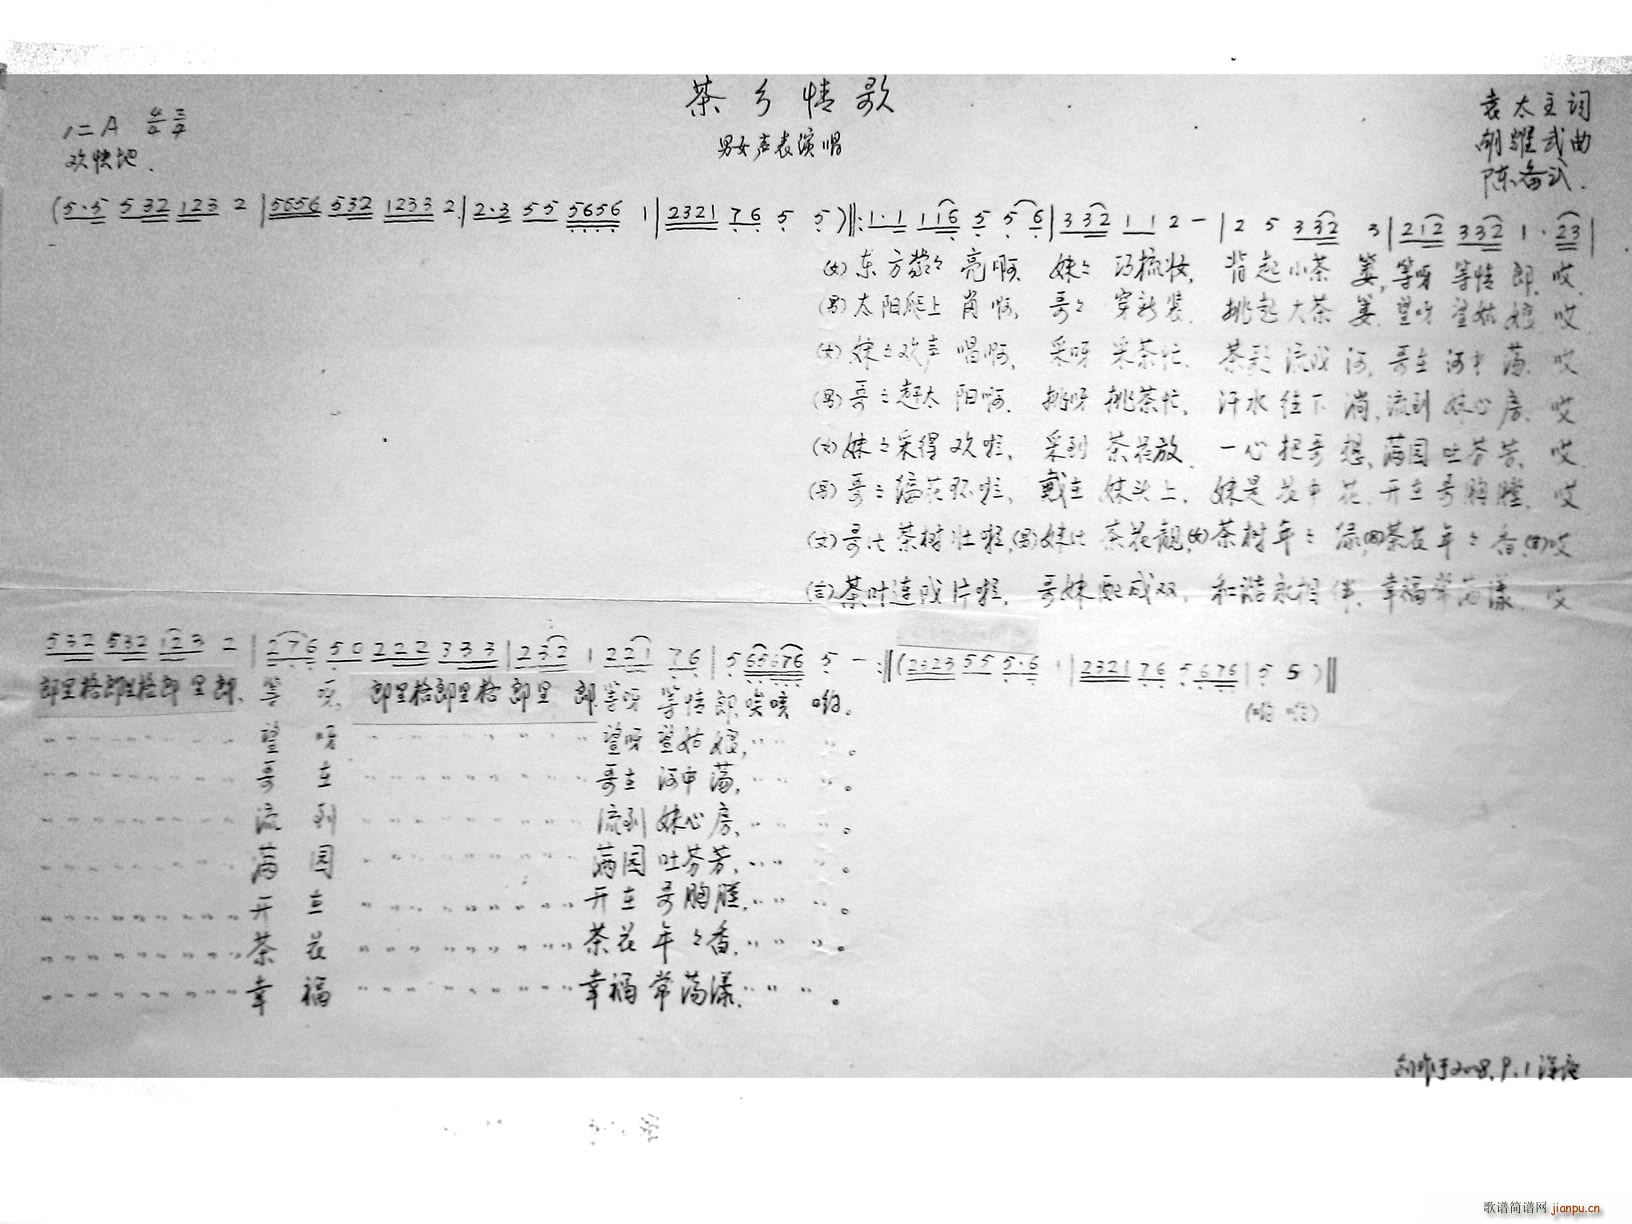 茶乡情歌
男女声表演唱
1=A 4/4 3/4
欢快地.
袁太主词
胡耀武曲
陈备武.
(5·5 532 123 2 | 5656 532 1233 2 | 2·3 55 5656 1 | 2321 76 5 5 ) ‖: 1·1 116 5 5 6 | 3 32 1 1 2 - | 2 5 3 32 3 | 212 332 1· 23 |
(女) 东方蒙々亮啊, 妹々巧梳妆, 背起小茶篓, 等呀等情郎, 哎
(男) 太阳爬上肖啊, 哥々穿新装, 挑起大茶篓, 望呀望姑娘, 哎
(女) 妹々欢声唱啊, 采呀采茶忙, 茶歌流成河, 哥在河中荡, 哎
(男) 哥々赶太阳啊, 挑呀挑茶忙, 汗水往下淌, 流到妹心房, 哎
(女) 妹々采得欢啦, 采到茶花放, 一心把哥想, 满园吐芬芳, 哎
(男) 哥々编花环啦, 戴在妹头上, 妹是花中花, 开在哥胸膛, 哎
(女) 哥比茶树壮啦, (男) 妹比茶花靓, (女) 茶树年々绿, (男) 茶花年々香, (合) 哎
(合) 茶叶连成片啦, 哥妹配成双, 和谐永相伴, 幸福常荡漾, 哎
532 532 123 2 | 276 50 222 333 | 232 1 221 76 | 5 65676 5 - :‖ (2323 55 5·6 1 | 2321 76 5 676 | 5 5 ) ‖
郎里格郎里格郎里郎, 等呀, 郎里格郎里格郎里郎, 等呀等情郎, 唉咳哟。
(哟哟)
望呀 望呀望姑娘,
哥在 哥在河中荡,
流到 流到妹心房,
满园 满园吐芬芳,
开在 开在哥胸膛,
茶花 茶花年々香,
幸福 幸福常荡漾,
创作于2008.9.1深夜
歌谱简谱网 jianpu.cn